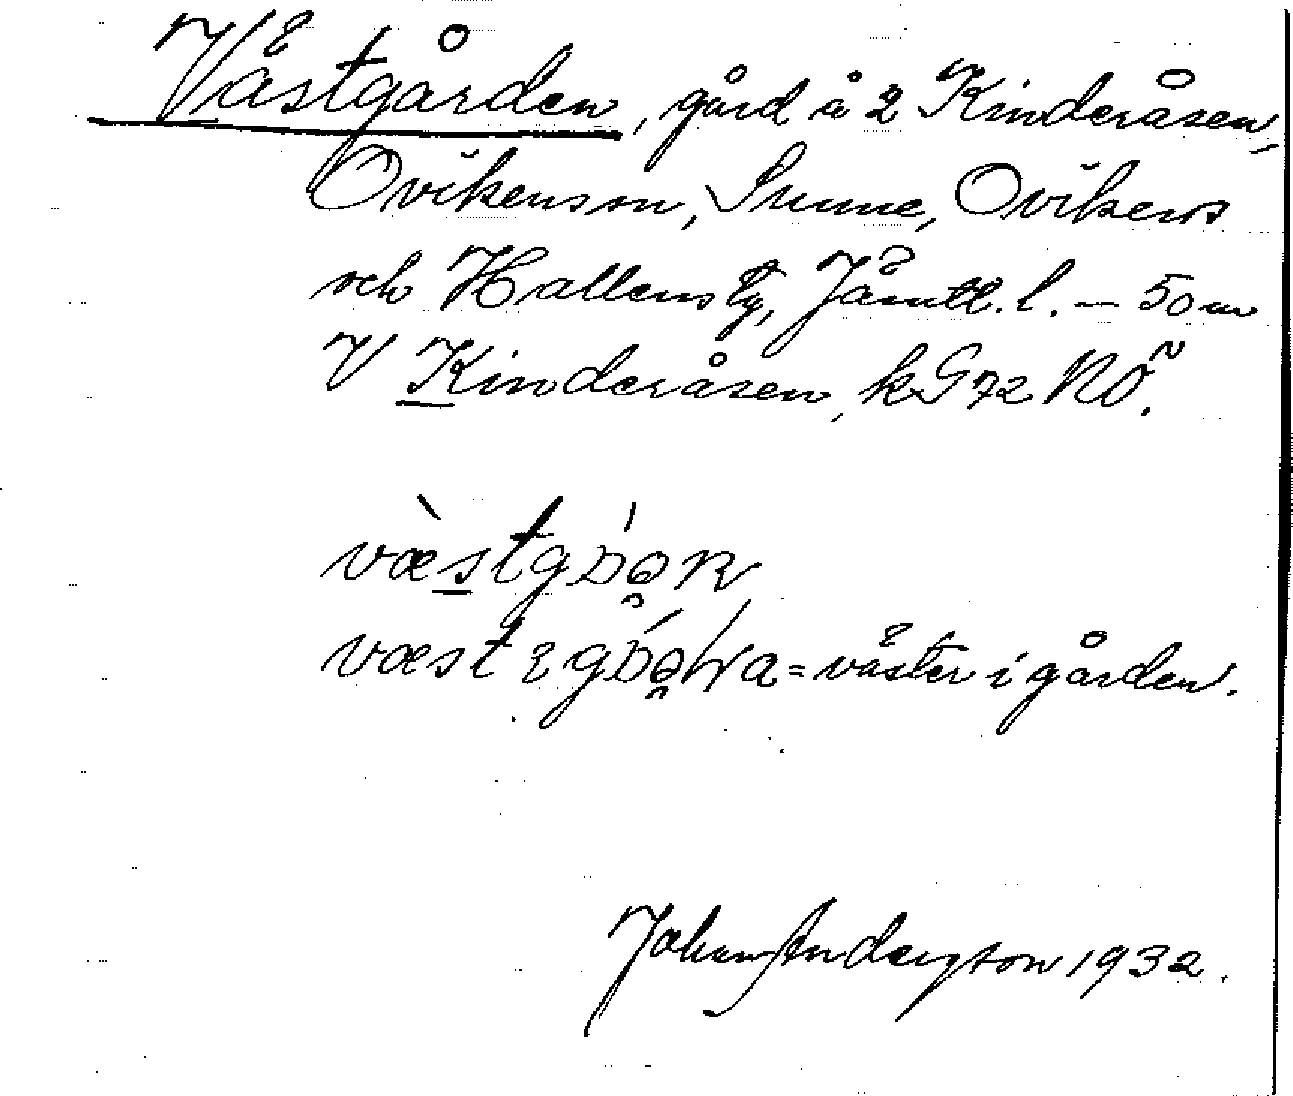 Västgården, gård å 2 Kinderåsen,
Ovikens sn, Sunne, Ovikens
och Hallens tg, Jämtl. l. – 50 m
V Kinderåsen, kG 72 NÖ.
væstgɔ́ən
væst ɪ gɔ́əɴa = väster i gården.
Johan Anderzson 1932.